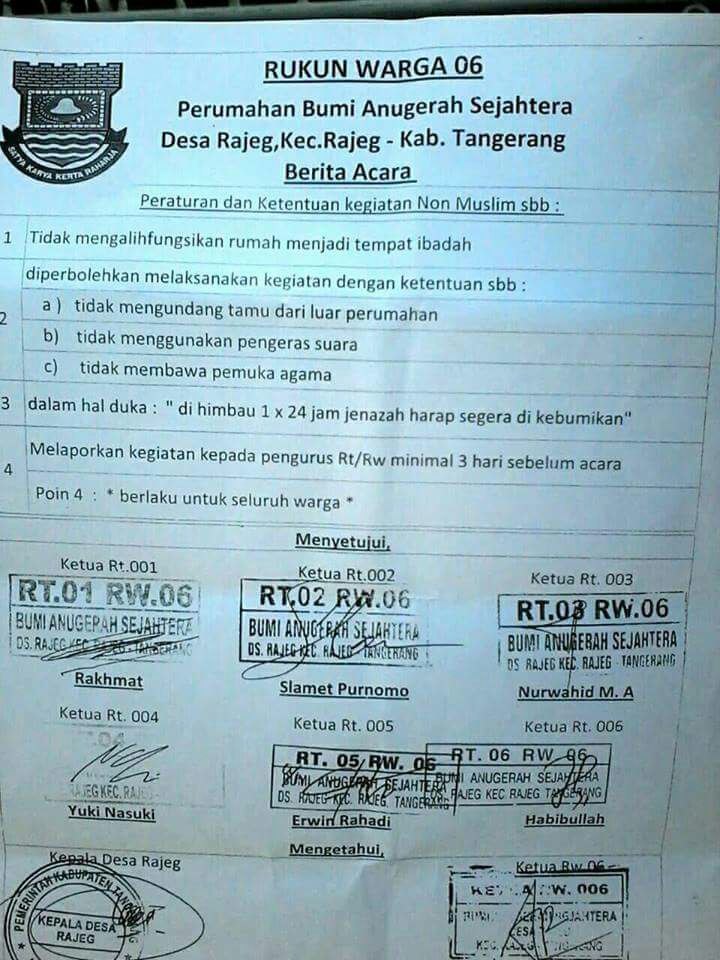 RUKUN WARGA 06
Perumahan Bumi Anugerah Sejahtera
Desa Rajeg,Kec.Rajeg - Kab. Tangerang
Berita Acara
SATYA KARYA KERTA RAHARJA
Peraturan dan Ketentuan kegiatan Non Muslim sbb :
1 Tidak mengalihfungsikan rumah menjadi tempat ibadah
diperbolehkan melaksanakan kegiatan dengan ketentuan sbb :
2
a ) tidak mengundang tamu dari luar perumahan
b) tidak menggunakan pengeras suara
c) tidak membawa pemuka agama
3 dalam hal duka : " di himbau 1 x 24 jam jenazah harap segera di kebumikan"
4 Melaporkan kegiatan kepada pengurus Rt/Rw minimal 3 hari sebelum acara
Poin 4 : * berlaku untuk seluruh warga *
Menyetujui,
Ketua Rt.001
RT.01 RW.06
BUMI ANUGERAH SEJAHTERA
DS. RAJEG KEC. RAJEG - TANGERANG
Rakhmat
Ketua Rt.002
RT.02 RW.06
BUMI ANUGERAH SEJAHTERA
DS. RAJEG KEC. RAJEG - TANGERANG
Slamet Purnomo
Ketua Rt. 003
RT.03 RW.06
BUMI ANUGERAH SEJAHTERA
DS RAJEG KEC. RAJEG - TANGERANG
Nurwahid M. A
Ketua Rt. 004
04
RAJEG KEC. RAJEG
Yuki Nasuki
Ketua Rt. 005
RT. 05/RW. 06
BUMI ANUGERAH SEJAHTERA
DS. RAJEG KEC. RAJEG. TANGERANG
Erwin Rahadi
Ketua Rt. 006
RT. 06 RW 06
BUMI ANUGERAH SEJAHTERA
DS. RAJEG KEC RAJEG TANGERANG
Habibullah
Mengetahui,
Kepala Desa Rajeg
PEMERINTAH KABUPATEN TANGERANG
KEPALA DESA
RAJEG
Ketua Rw 06
KETUA RW. 006
SEJAHTERA
DESA
KEC. RAJEG - TANGERANG